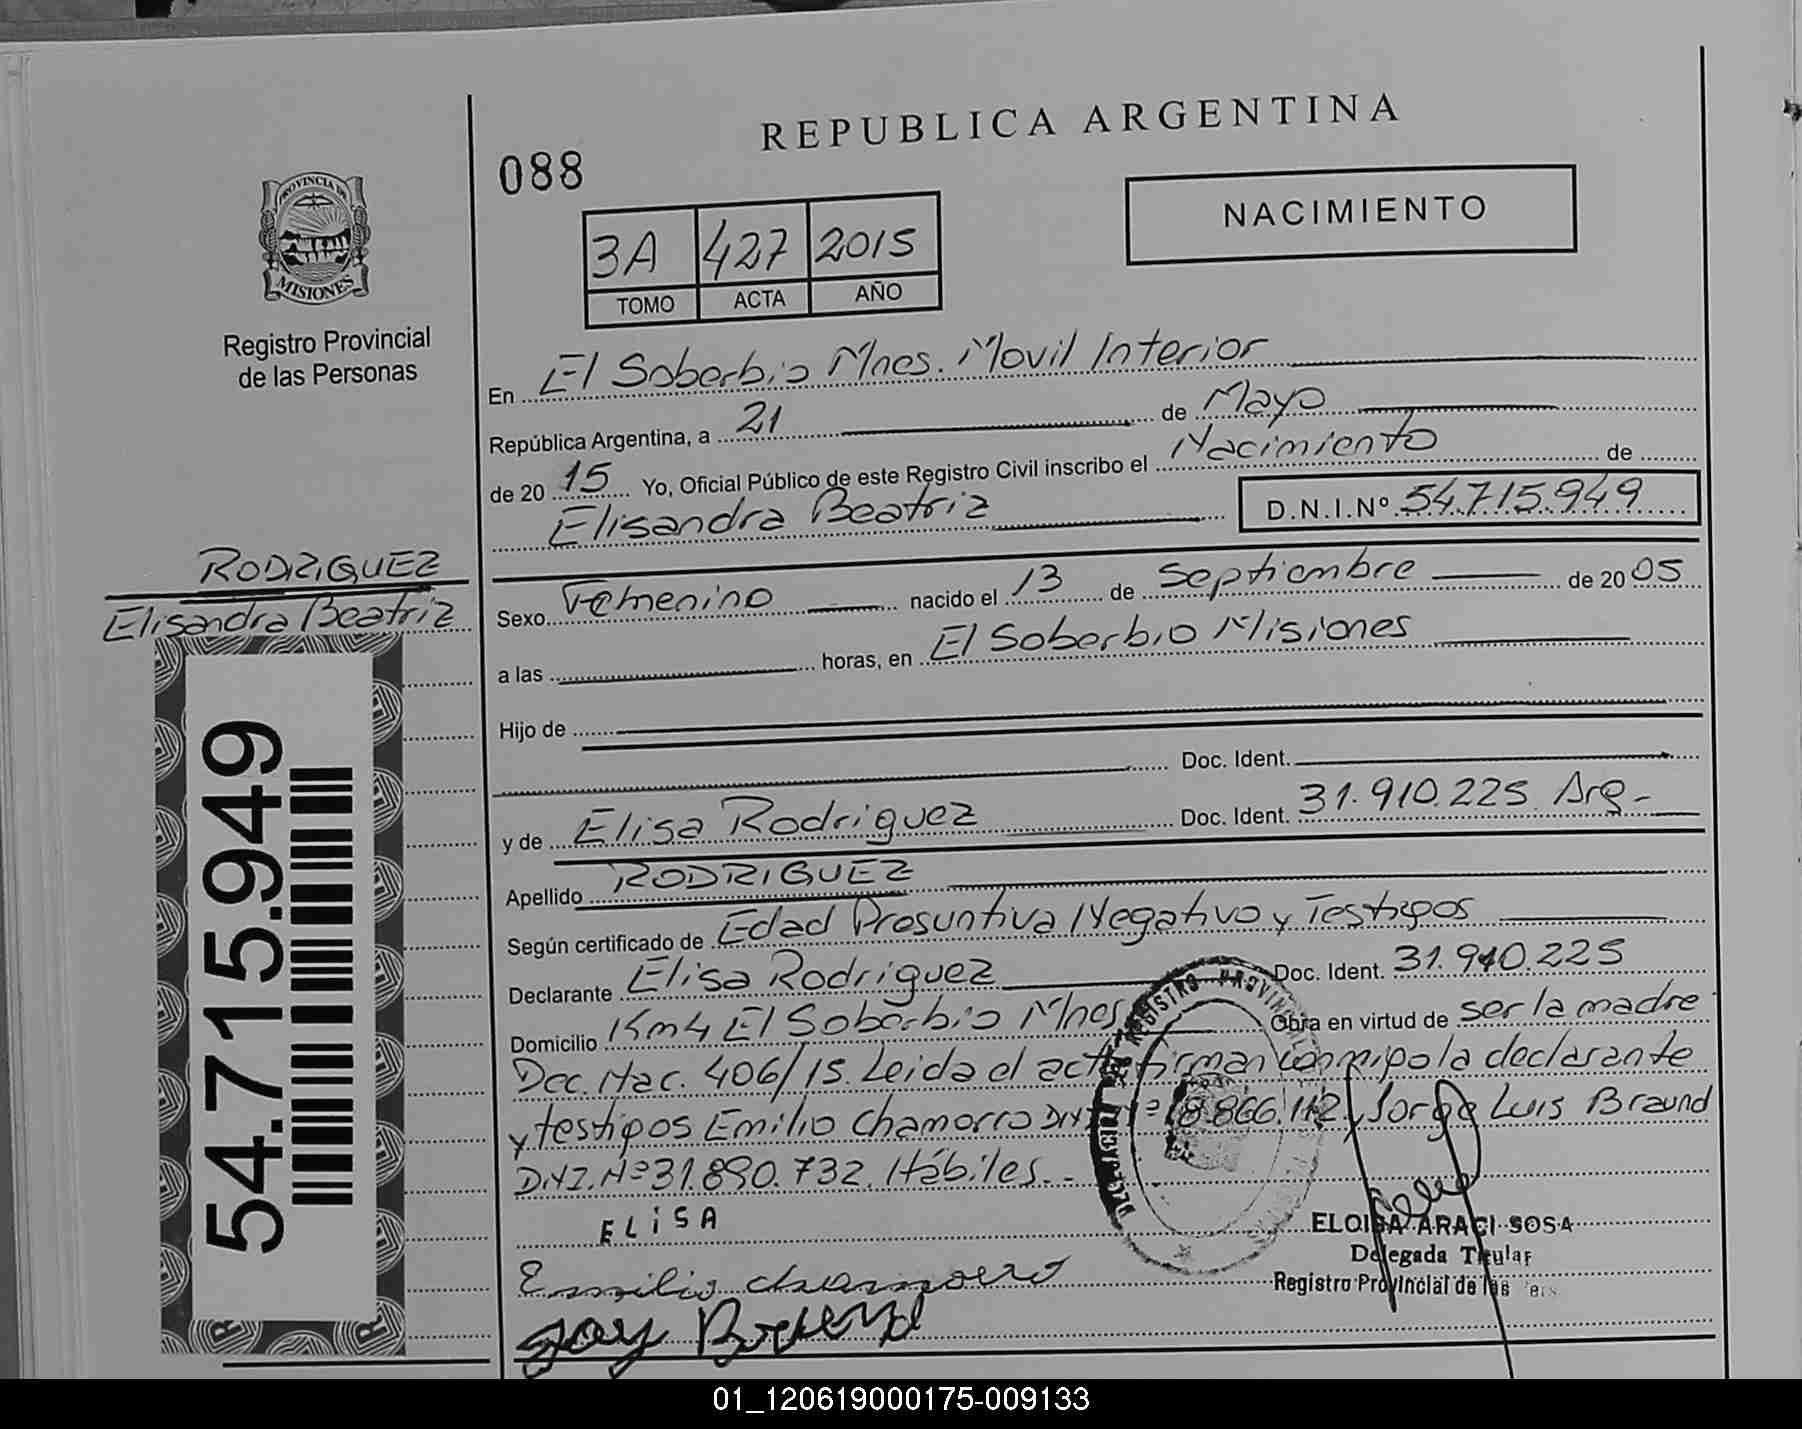 REPUBLICA ARGENTINA
088
NACIMIENTO
3A 427 2015
TOMO ACTA AÑO
PROVINCIA DE
MISIONES
Registro Provincial
de las Personas
En El Soberbio Mnes. Movil Interior
República Argentina, a 21 de Mayo
de 20 15 Yo, Oficial Público de este Registro Civil inscribo el Nacimiento de
Elisandra Beatriz D.N.I.Nº 54.715.949
RODRIGUEZ
Elisandra Beatriz
54.715.949
Sexo Femenino nacido el 13 de Septiembre de 20 05
a las horas, en El Soberbio Misiones
Hijo de
Doc. Ident.
y de Elisa Rodriguez Doc. Ident. 31.910.225 Arg.-
Apellido RODRIGUEZ
Según certificado de Edad Presuntiva Negativo y Testigos
Declarante Elisa Rodriguez Doc. Ident. 31.910.225
Domicilio Km4 El Soberbio Mnes Obra en virtud de ser la madre
Dec. Nac. 406/15. Leida el acta firman conmigo la declarante
y testigos Emilio Chamorro DNI Nº 18.866.112 y Jorge Luis Braund
DNI. Nº 31.890.732. Hábiles.-
ELiSA
Emilio chamorro
ELOISA ARACI SOSA
Delegada Titular
Registro Provincial de las Pers
REGISTRO PROVINCIAL
01_120619000175-009133